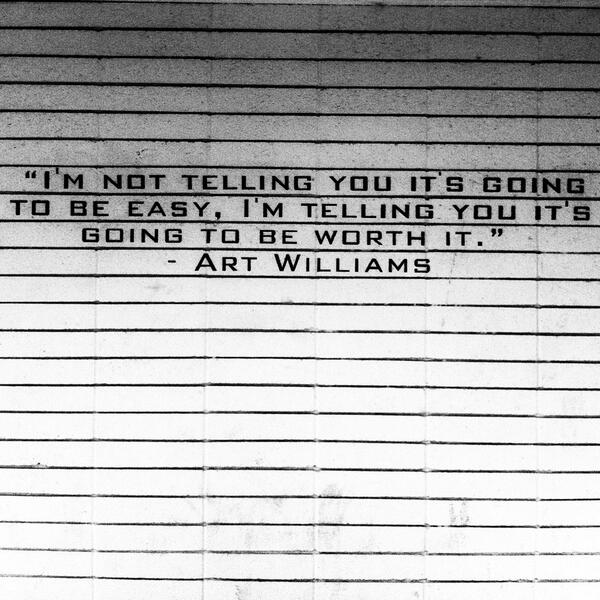 “I'M NOT TELLING YOU IT'S GOING
TO BE EASY, I'M TELLING YOU IT'S
GOING TO BE WORTH IT.”
- ART WILLIAMS